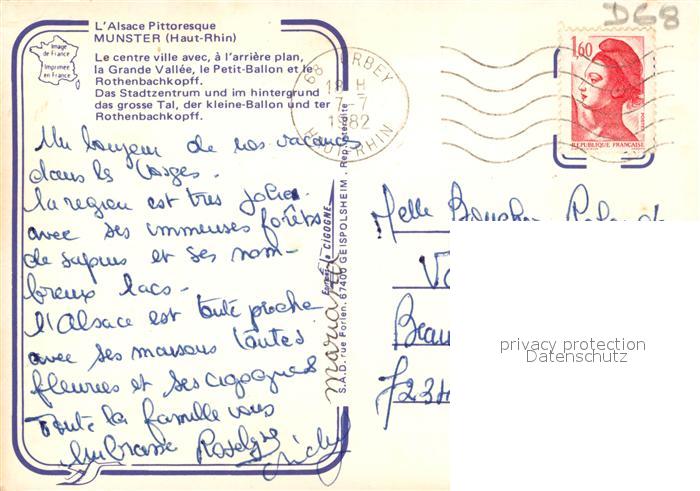 D68
L'Alsace Pittoresque
MUNSTER (Haut-Rhin)
Image
de France
Imprimée
en France
Le centre ville avec, à l'arrière plan,
la Grande Vallée, le Petit-Ballon et le
Rothenbachkopff.
Das Stadtzentrum und im hintergrund
das grosse Tal, der kleine-Ballon und ter
Rothenbachkopff.
68 ORBEY
18 H
7-7
1982
HAUT-RHIN
1,60
REPUBLIQUE FRANÇAISE
Un bonjour de nos vacances
dans les Vosges.
la region est très jolie
avec ses immenses forêts
de sapins et ses nom-
breux lacs.
l'Alsace est toute proche
avec ses maisons toutes
fleuries et ses cigognes
Toute la famille vous
embrasse
Editions la CIGOGNE
S.A.D. rue Forlen. 67400 GEISPOLSHEIM . Rep. interdite
Melle
Beau
723
privacy protection
Datenschutz